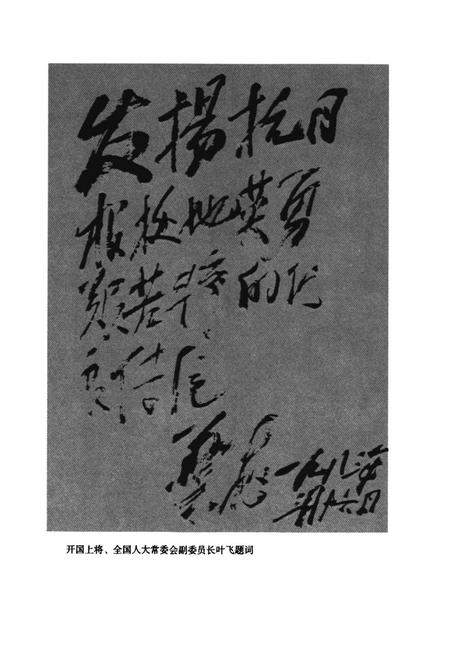 发揚抗日
根据地英勇
艰苦斗争的优
良传统
葉飞 一九八
月十六日
开国上将、全国人大常委会副委员长叶飞题词